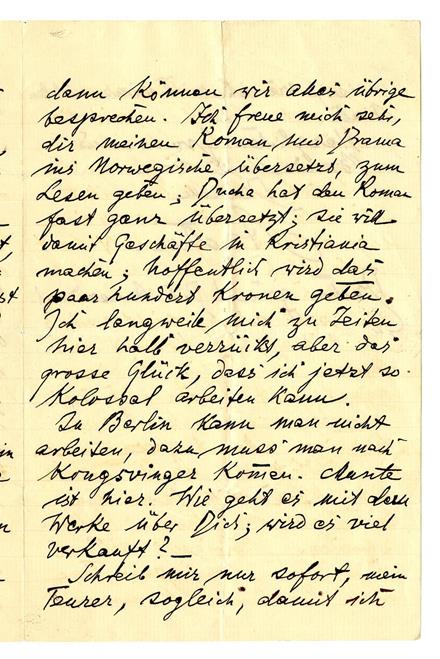 dann können wir alles übrige
besprechen. Ich freue mich sehr,
dir meinen Roman und Drama
ins Norwegische übersetzt, zum
Lesen geben; Ducha hat den Roman
fast ganz übersetzt; sie will
damit Geschäfte in Kristiania
machen; hoffentlich wird das
paar hundert Kronen geben.
Ich langweile mich zu Zeiten
hier halb verrückt, aber das
grosse Glück, dass ich jetzt so
kolossal arbeiten kann.
In Berlin kann man nicht
arbeiten, dazu muss man nach
Kongsvinger komen.
ist hier. Wie geht es mit dem
Werke über Dich; wird es viel
verkauft? —
Schreib mir nur sofort, mein
Teurer, sogleich, damit ich